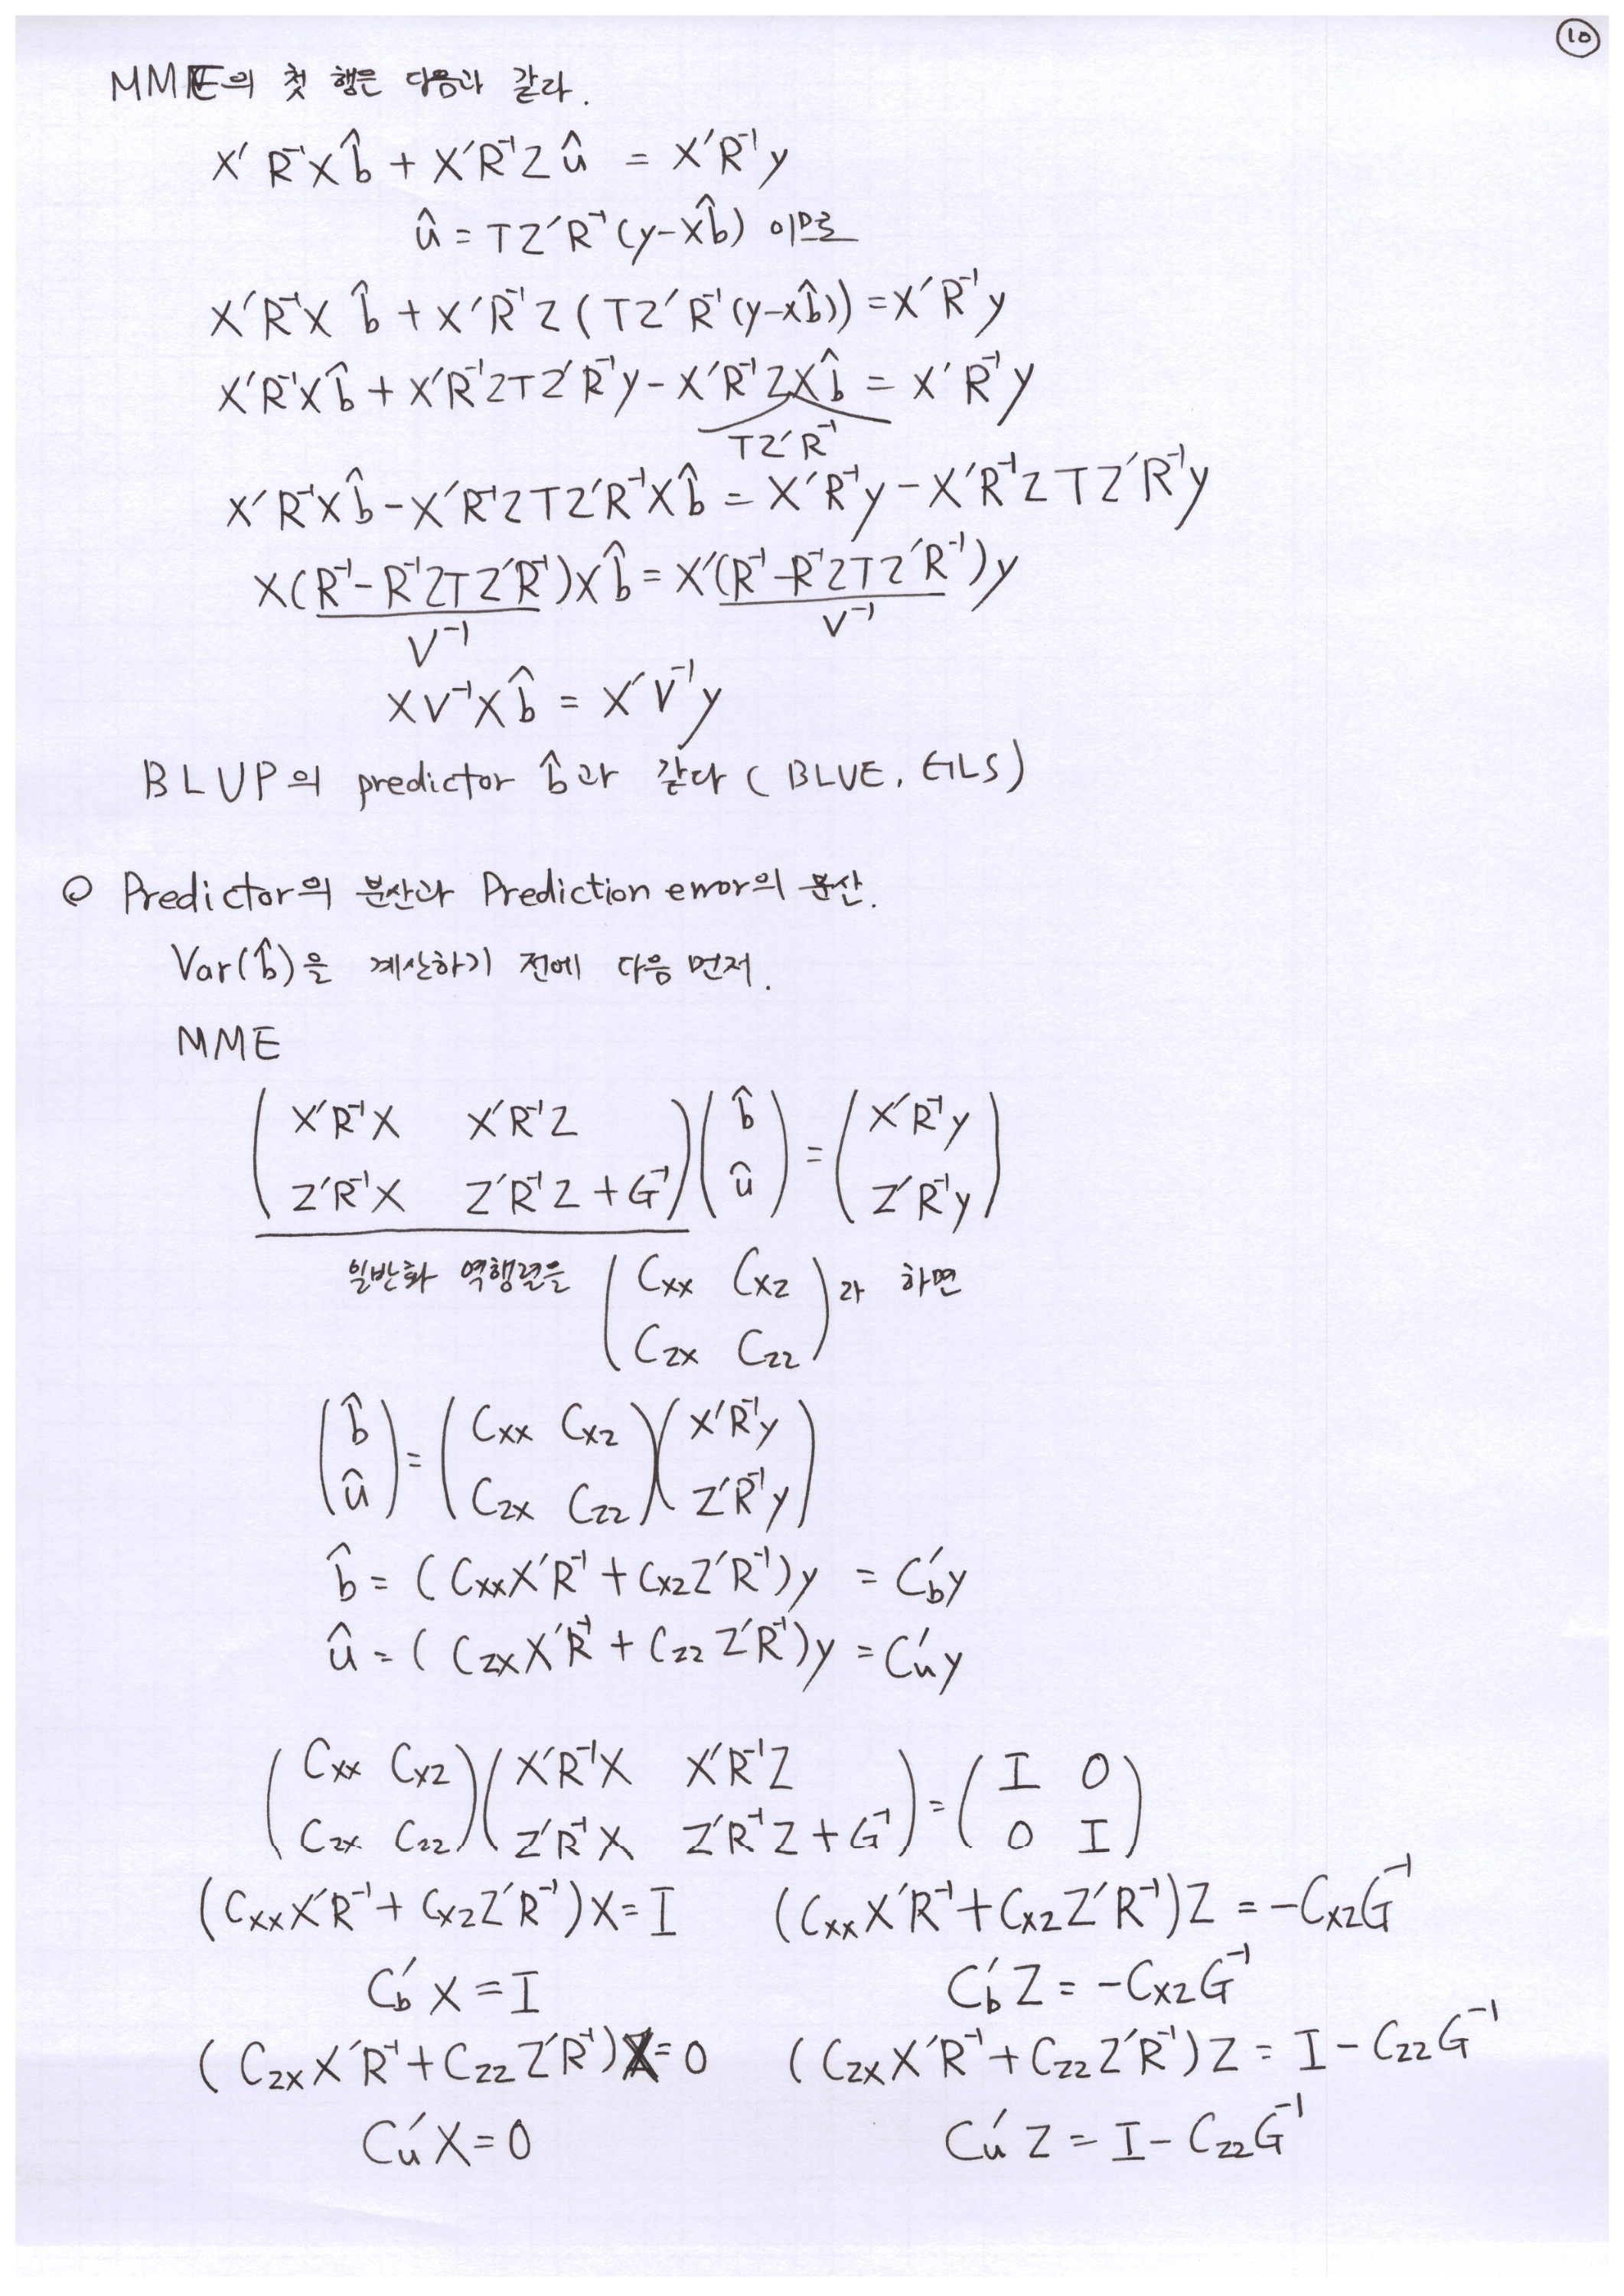 10
MME의 첫 행은 다음과 같다.
X′R⁻¹Xb̂ + X′R⁻¹Zû = X′R⁻¹y
û = TZ′R⁻¹(y-Xb̂) 이므로
X′R⁻¹Xb̂ + X′R⁻¹Z(TZ′R⁻¹(y-Xb̂)) = X′R⁻¹y
X′R⁻¹Xb̂ + X′R⁻¹ZTZ′R⁻¹y - X′R⁻¹ZXb̂ = X′R⁻¹y
TZ′R⁻¹
X′R⁻¹Xb̂ - X′R⁻¹ZTZ′R⁻¹Xb̂ = X′R⁻¹y - X′R⁻¹ZTZ′R⁻¹y
X(R⁻¹-R⁻¹ZTZ′R⁻¹)Xb̂ = X′(R⁻¹-R⁻¹ZTZ′R⁻¹)y
V⁻¹ V⁻¹
XV⁻¹Xb̂ = X′V⁻¹y
BLUP의 predictor b̂과 같다 (BLUE, GLS)
◎ Predictor의 분산과 Prediction error의 분산.
Var(b̂)을 계산하기 전에 다음 먼저.
MME
( X′R⁻¹X X′R⁻¹Z ) ( b̂ ) = ( X′R⁻¹y )
( Z′R⁻¹X Z′R⁻¹Z + G⁻¹ ) ( û ) = ( Z′R⁻¹y )
일반화 역행렬을 ( Cxx Cxz ) 라 하면
( Czx Czz )
( b̂ ) = ( Cxx Cxz ) ( X′R⁻¹y )
( û ) = ( Czx Czz ) ( Z′R⁻¹y )
b̂ = (CxxX′R⁻¹ + CxzZ′R⁻¹)y = C′by
û = (CzxX′R⁻¹ + CzzZ′R⁻¹)y = C′uy
( Cxx Cxz ) ( X′R⁻¹X X′R⁻¹Z ) = ( I O )
( Czx Czz ) ( Z′R⁻¹X Z′R⁻¹Z + G⁻¹ ) = ( O I )
(CxxX′R⁻¹ + CxzZ′R⁻¹)X = I (CxxX′R⁻¹ + CxzZ′R⁻¹)Z = -CxzG⁻¹
C′bX = I C′bZ = -CxzG⁻¹
(CzxX′R⁻¹ + CzzZ′R⁻¹)X = 0 (CzxX′R⁻¹ + CzzZ′R⁻¹)Z = I - CzzG⁻¹
C′uX = 0 C′uZ = I - CzzG⁻¹